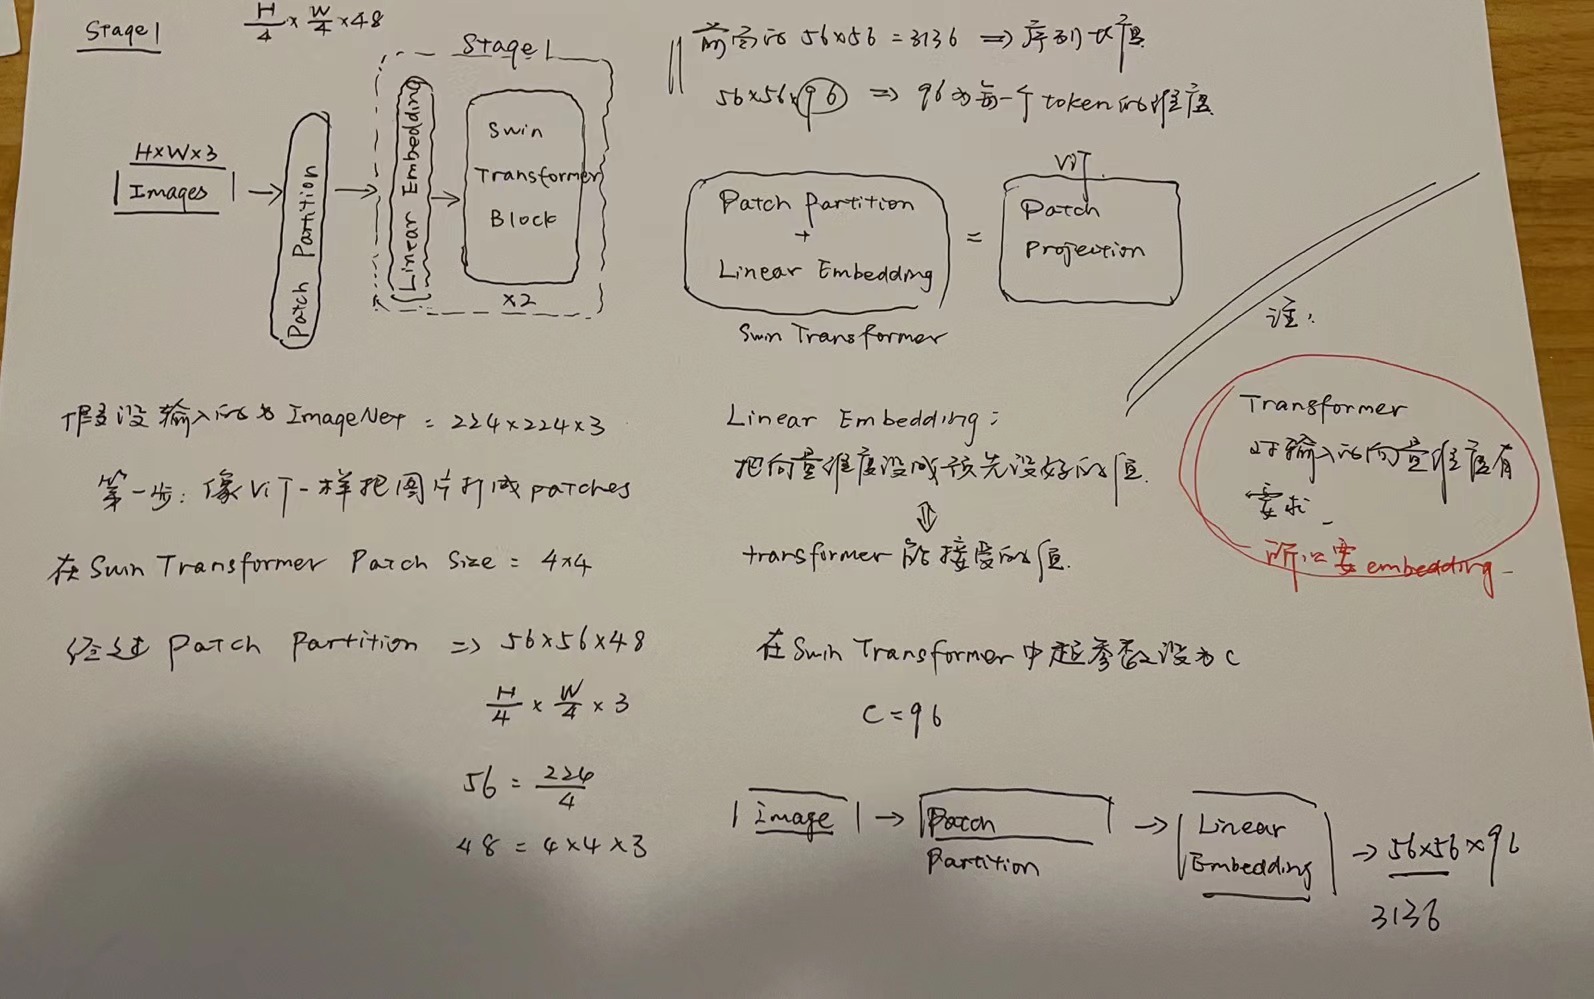 Stage 1
H/4 × W/4 × 48
Stage 1
H×W×3
Images
Patch Partition
Linear Embedding
Swin
Transformer
Block
×2
前面的 56×56 = 3136 ⇒ 序列长度
56×56×96 ⇒ 96为每一个token的维度
Patch Partition
+
Linear Embedding
Swin Transformer
=
ViT
Patch
Projection
假设输入的为 ImageNet = 224×224×3
第一步: 像ViT一样把图片打成patches
在 Swin Transformer Patch Size = 4×4
经过 Patch Partition ⇒ 56×56×48
H/4 × W/4 × 3
56 = 224/4
48 = 4×4×3
Linear Embedding:
把向量维度设成预先设好的值.
⇓
transformer 能接受的值.
在 Swin Transformer 中超参数设为 C
C = 96
Image → Patch Partition → Linear Embedding → 56×56×96
3136
注:
Transformer
对输入的向量维度有
要求
所以要 embedding